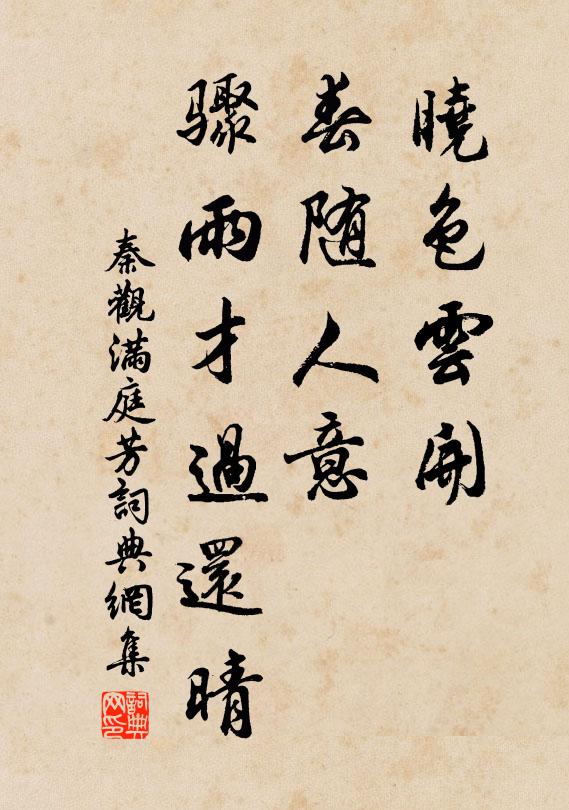 曉色雲開
春随人意
驟雨才過還晴
秦觀滿庭芳詞典網集
詞典網印